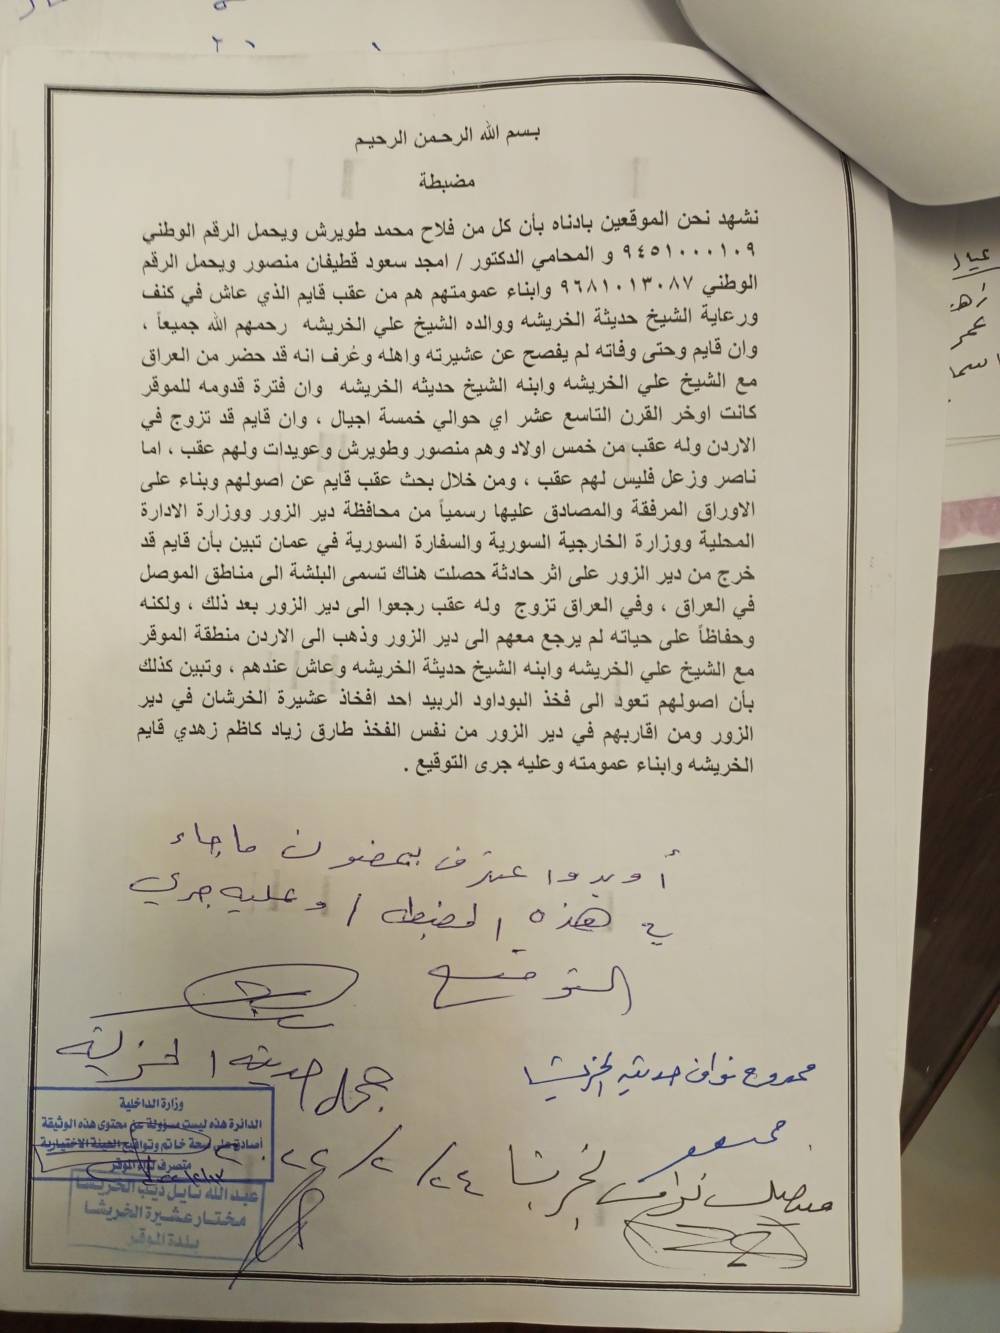 بسم الله الرحمن الرحيم
مضبطة
نشهد نحن الموقعين بادناه بأن كل من فلاح محمد طويرش ويحمل الرقم الوطني
٩٤٥١٠٠٠١٠٩ و المحامي الدكتور / امجد سعود قطيفان منصور ويحمل الرقم
الوطني ٩٦٨١٠١٣٠٨٧ وابناء عمومتهم هم من عقب قايم الذي عاش في كنف
ورعاية الشيخ حديثة الخريشه ووالده الشيخ علي الخريشه رحمهم الله جميعاً ،
وان قايم وحتى وفاته لم يفصح عن عشيرته واهله وعُرف انه قد حضر من العراق
مع الشيخ علي الخريشه وابنه الشيخ حديثه الخريشه وان فترة قدومه للموقر
كانت اوخر القرن التاسع عشر اي حوالي خمسة اجيال ، وان قايم قد تزوج في
الاردن وله عقب من خمس اولاد وهم منصور وطويرش وعويدات ولهم عقب ، اما
ناصر وزعل فليس لهم عقب ، ومن خلال بحث عقب قايم عن اصولهم وبناء على
الاوراق المرفقة والمصادق عليها رسمياً من محافظة دير الزور ووزارة الادارة
المحلية ووزارة الخارجية السورية والسفارة السورية في عمان تبين بأن قايم قد
خرج من دير الزور على اثر حادثة حصلت هناك تسمى البلشة الى مناطق الموصل
في العراق ، وفي العراق تزوج وله عقب رجعوا الى دير الزور بعد ذلك ، ولكنه
وحفاظاً على حياته لم يرجع معهم الى دير الزور وذهب الى الاردن منطقة الموقر
مع الشيخ علي الخريشه وابنه الشيخ حديثة الخريشه وعاش عندهم ، وتبين كذلك
بأن اصولهم تعود الى فخذ البوداود الربيد احد افخاذ عشيرة الخرشان في دير
الزور ومن اقاربهم في دير الزور من نفس الفخذ طارق زياد كاظم زهدي قايم
الخريشه وابناء عمومته وعليه جرى التوقيع .
بمضمون ما جاء
في هذه المضبطه / وعليه جرى
التوقيع
حديثه الخريشه
ممدوح نواف حديثه الخريشا
وزارة الداخلية
الدائرة هذه ليست مسؤولة عن محتوى هذه الوثيقة
أصادق على صحة خاتم وتواقيع الهيئة الاختيارية
متصرف لواء الموقر
الخريشا ٢٤/٢/
عبدالله نايل ذيب الخريشا
مختار عشيرة الخريشا
بلدة الموقر
عمر